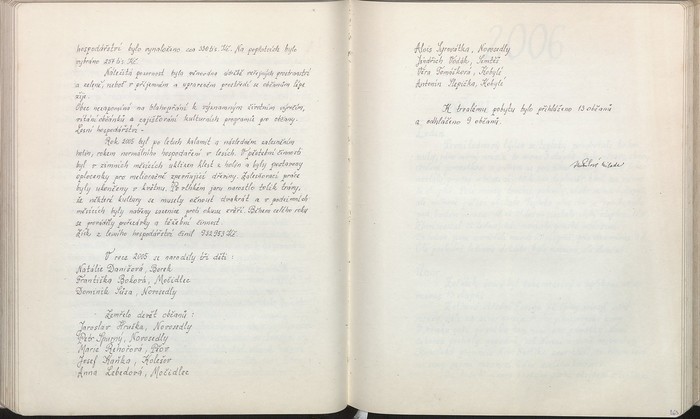 hospodářství bylo vynaloženo cca 330 tis. Kč. Na poplatcích bylo
vybráno 237 tis. Kč.
Náležitá pozornost byla věnována údržbě veřejných prostranství
a zeleně, neboť v příjemném a upraveném prostředí se občanům lépe
žije.
Obec nezapomíná na blahopřání k významným životním výročím,
vítání občánků a zajišťování kulturních programů pro občany.
Lesní hospodářství -
Rok 2005 byl po letech kalamit a následném zalesněním
holin, rokem normálního hospodaření v lesích. V pěstební činnosti
byl v zimních měsících uklizen klest z holin a byly postaveny
oplocenky pro melioračně zpevňující dřeviny. Zalesňovací práce
byly ukončeny v květnu. Po vlhkém jaru narostlo tolik trávy,
že některé kultury se musely ožínat dvakrát a v podzimních
měsících byly natřeny sazenice proti okusu zvěří. Během celého roku
se prováděly prořezávky a těžební činnost.
Zisk z lesního hospodářství činil 932 953 Kč.
V roce 2005 se narodily tři děti:
Natálie Daničová, Borek
Františka Boková, Močidlec
Dominik Süsa, Novosedly
Zemřelo devět občanů:
Jaroslav Hruška, Novosedly
Petr Spurný, Novosedly
Marie Řehořová,
Josef Kaňka, Kolešov
Anna Lebedová, Močidlec
Alois Syrovátka, Novosedly
Jindřich Vošáh,
Věra Tomášková, Kobylé
Antonín Slepička, Kobylé
K trvalému pobytu bylo přihlášeno 13 občanů
a odhlášeno 9 občanů.